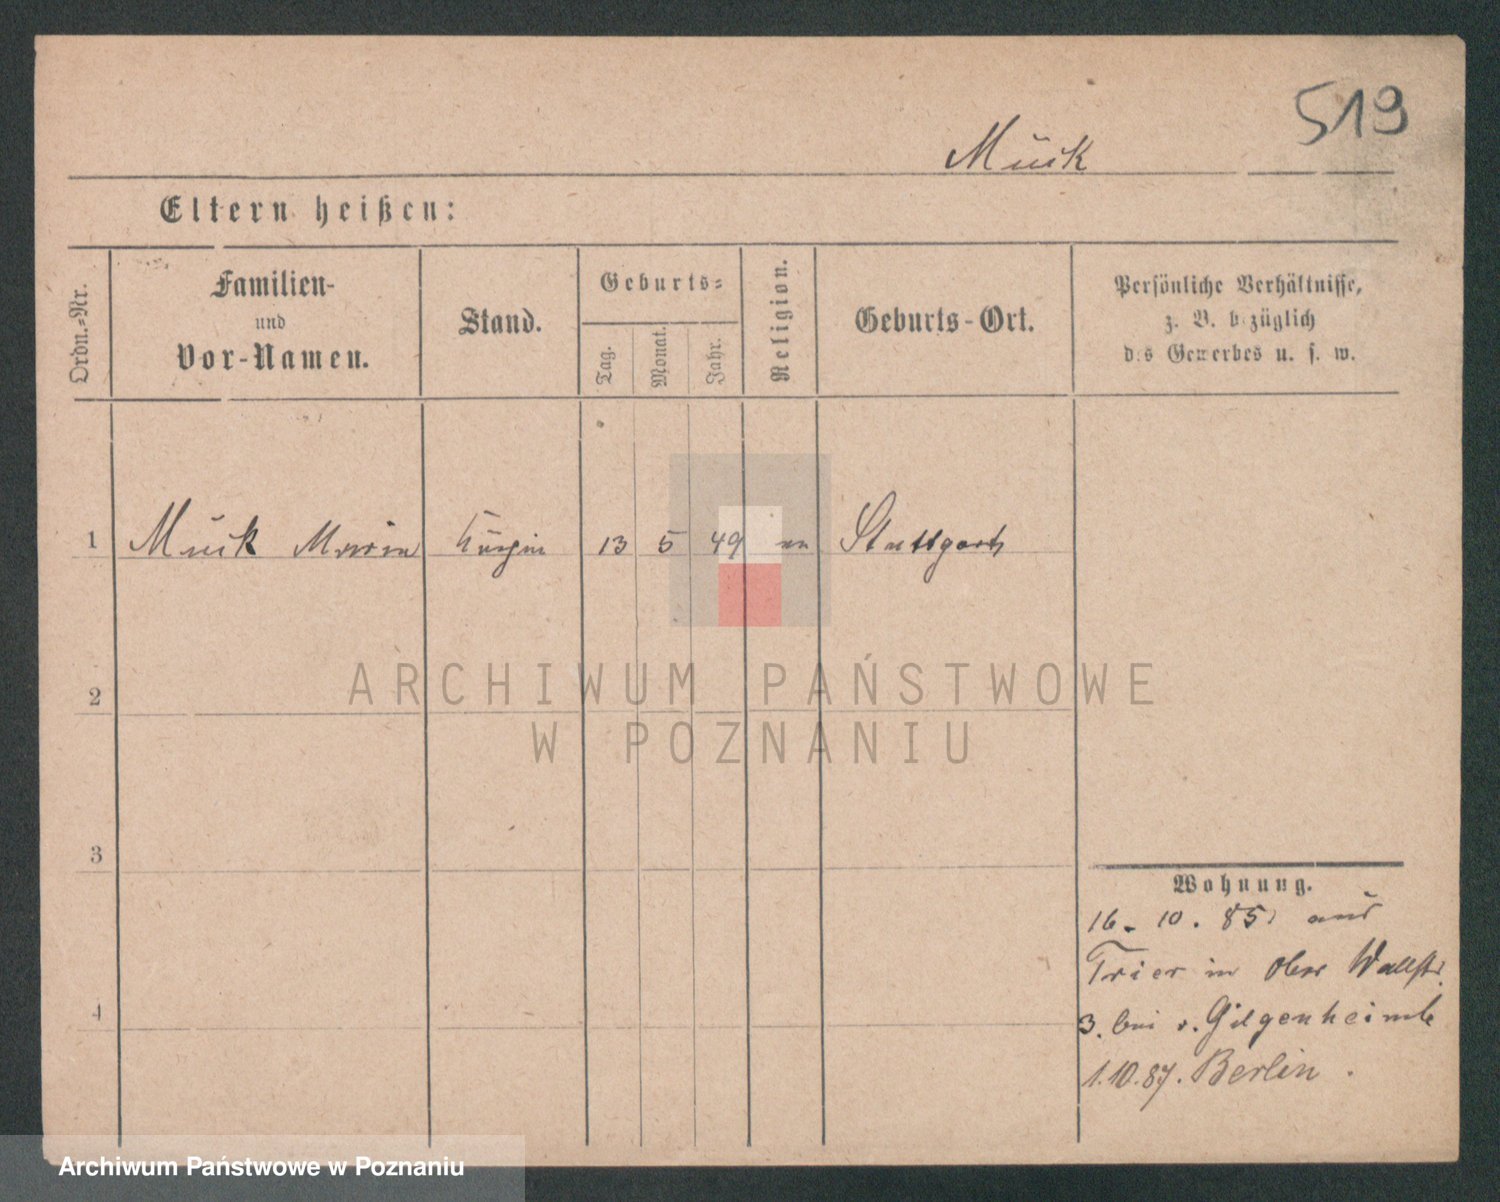 519
Muck
Eltern heißen:
Ordn.-Nr.
Familien-
und
Vor-Namen.
Stand.
Geburts-
Tag.
Monat.
Jahr.
Religion.
Geburts-Ort.
Persönliche Verhältnisse,
z. B. bezüglich
des Gewerbes u. s. w.
1 Muck Maria Köchin 13 5 49 ev Stuttgart
2
3
4
ARCHIWUM PAŃSTWOWE
W POZNANIU
Wohnung.
16. 10. 85. aus
Trier in Ober Wallstr.
3. bei v. Gilgenheimb
1.10.87. Berlin.
Archiwum Państwowe w Poznaniu